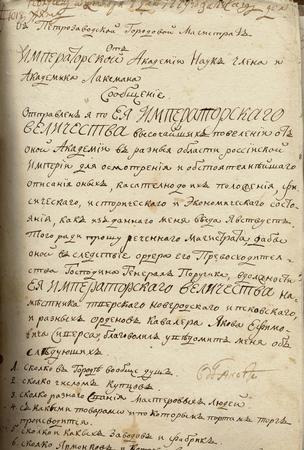 въ Петрозаводской Городовой Магистратъ
Отъ
ИМПЕРАТОРСКОЙ Академіи Наукъ члена и
Академика Лаксмана
Сообщеніе
Отправленъ я по ЕЯ ИМПЕРАТОРСКАГО
ВЕЛИЧЕСТВА высочайшимъ повеленію отъ
оной Академіи въ разныя области россійской
Имперіи для осмотренія и обстоятельнѣйшаго
описанія оныхъ, касательно до ихъ положенія, фи-
зическаго, историческаго и экономическаго состо-
янія, какъ изъ даннаго меня вида явствуетъ
Того ради прошу реченнаго Магистрата дабы
оной въ следствіе ордера его Превосходитель-
ства Господина Генералъ Поручика, въ должности
ЕЯ ИМПЕРАТОРСКАГО ВЕЛИЧЕСТВА на-
мѣстника тверскаго новгородскаго и псковскаго,
и разныхъ орденовъ Кавалера Якова Ефимо-
вича Сиверса, благоволилъ уведомить меня объ
слѣдующихъ
1. сколко въ Городѣ вообще душъ
2. сколко числомъ купцовъ
3. сколко разнаго званія Мастеровыхъ Людей
4. съ какими товарами и по которымъ портамъ торгъ
производится.
5. сколко и какихъ заводовъ и фабрикъ.
6. сколко Ярмонокъ